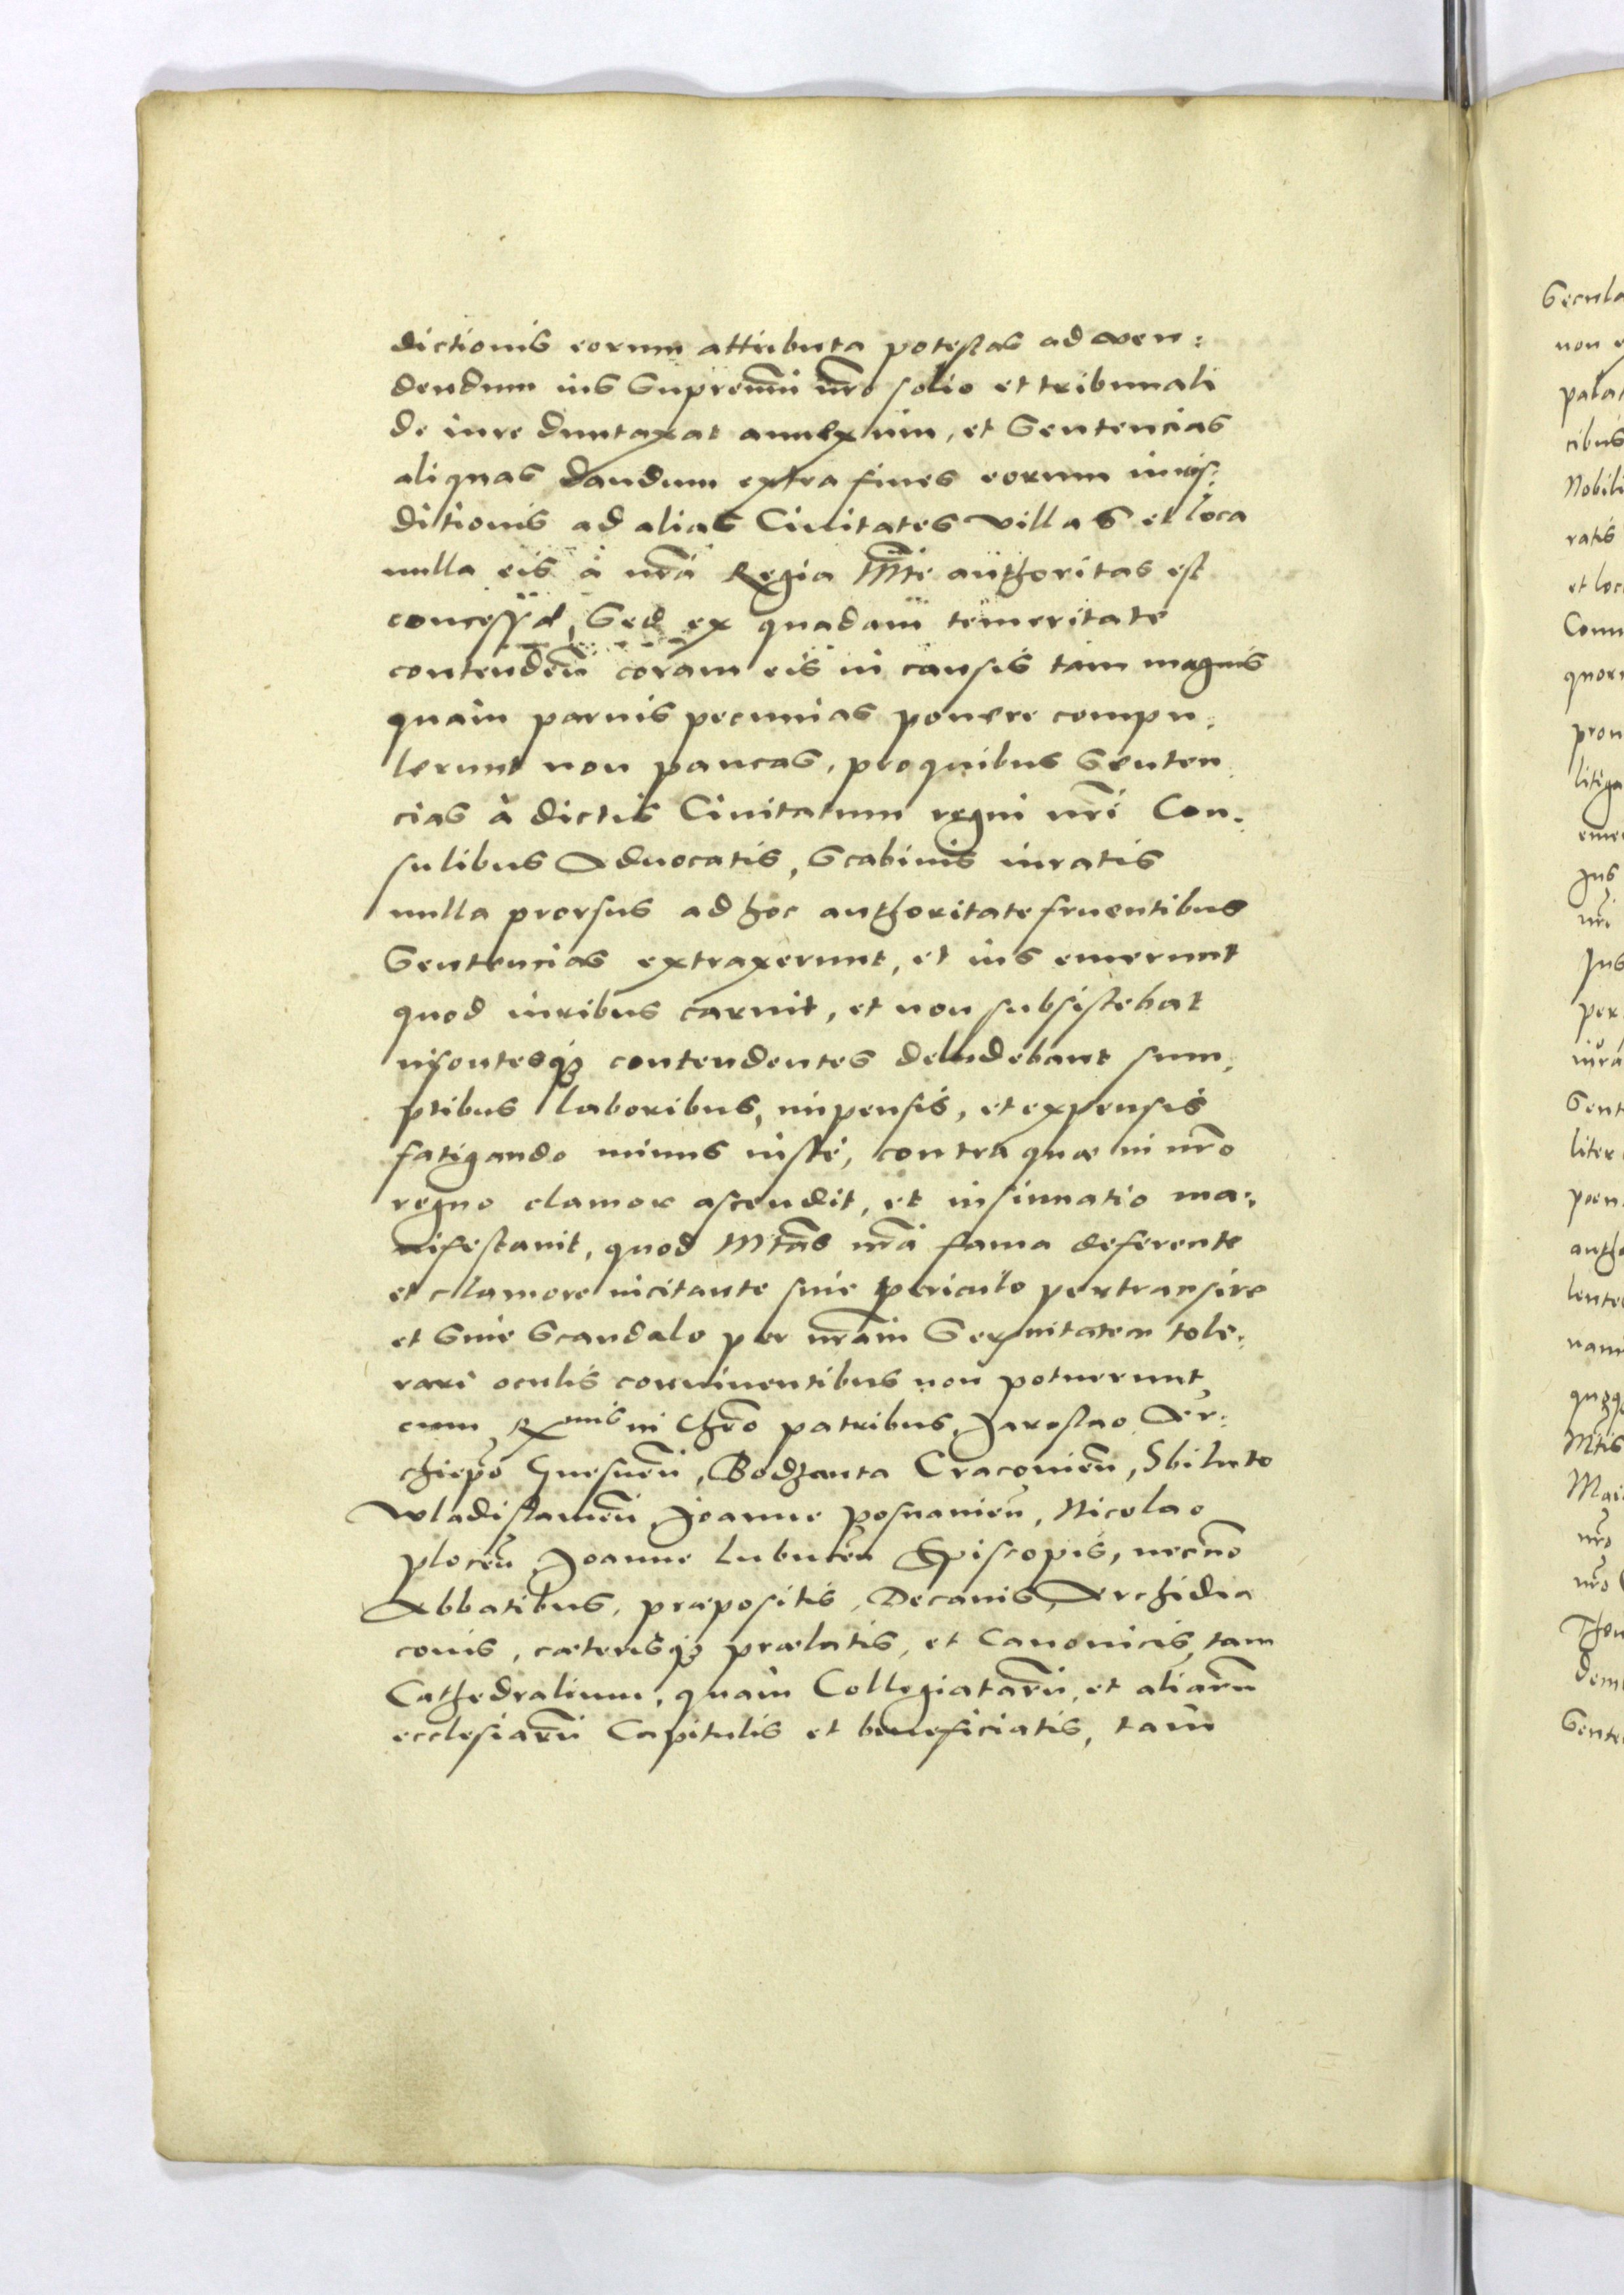 dictionis eorum attributa potestas ad ven:
dendum ius Supremūi nr̄o solio et tribunali
de iure duntaxat annexum, et Sentencias
aliquas dandum extra fines eorum iuris:
ditionis ad alias Ciuitates villas et loca
nulla eis à nr̄a Regia Mt̄e authoritas est
concessa, Sed ex quadam temeritate
contendēn coram eis in causis tam magnis
quam paruis pecunias ponere compu:
lerunt non paucas, pro quibus Senten
cias à dictis Ciuitatum regni nr̄i Con:
sulibus Aduocatis, Scabinis iuratis
nulla prorsus ad hoc authoritate fruentibus
Sentencias extraxerunt, et ius emerunt
quod iuribus caruit, et non subsistebat
insontesqʒ contendentes deludebant sum:
ptibus laboribus, impensis, et expensis
fatigando minus iuste, contra quae in nr̄o
regno clamor ascendit, et insinuatio ma:
nifestauit, quod Mt̄as nr̄a fama deferente
et clamore incitante sine periculo pertransire
et Sine Scandalo per nr̄am Serenitatem tole:
rari oculis conniuentibus non potuerunt,
cum Rmis in Chr̄o patribus, Jaroslao Ar:
chiepō Gnesnēn, Bodzanta Cracouiēn, Sbiluto
Wladislauiēn, Joanne posnaniēn, Nicolao
plocēn, Joanne lubucēn Episcopis, necnō
Abbatibus, praepositis, Decanis, Archidia
conis, caeterisqʒ praelatis, et Canonicis, tam
Cathedralium, quam Collegiatarū, et aliarū
ecclesiarū Capitulis et beneficiatis, tam